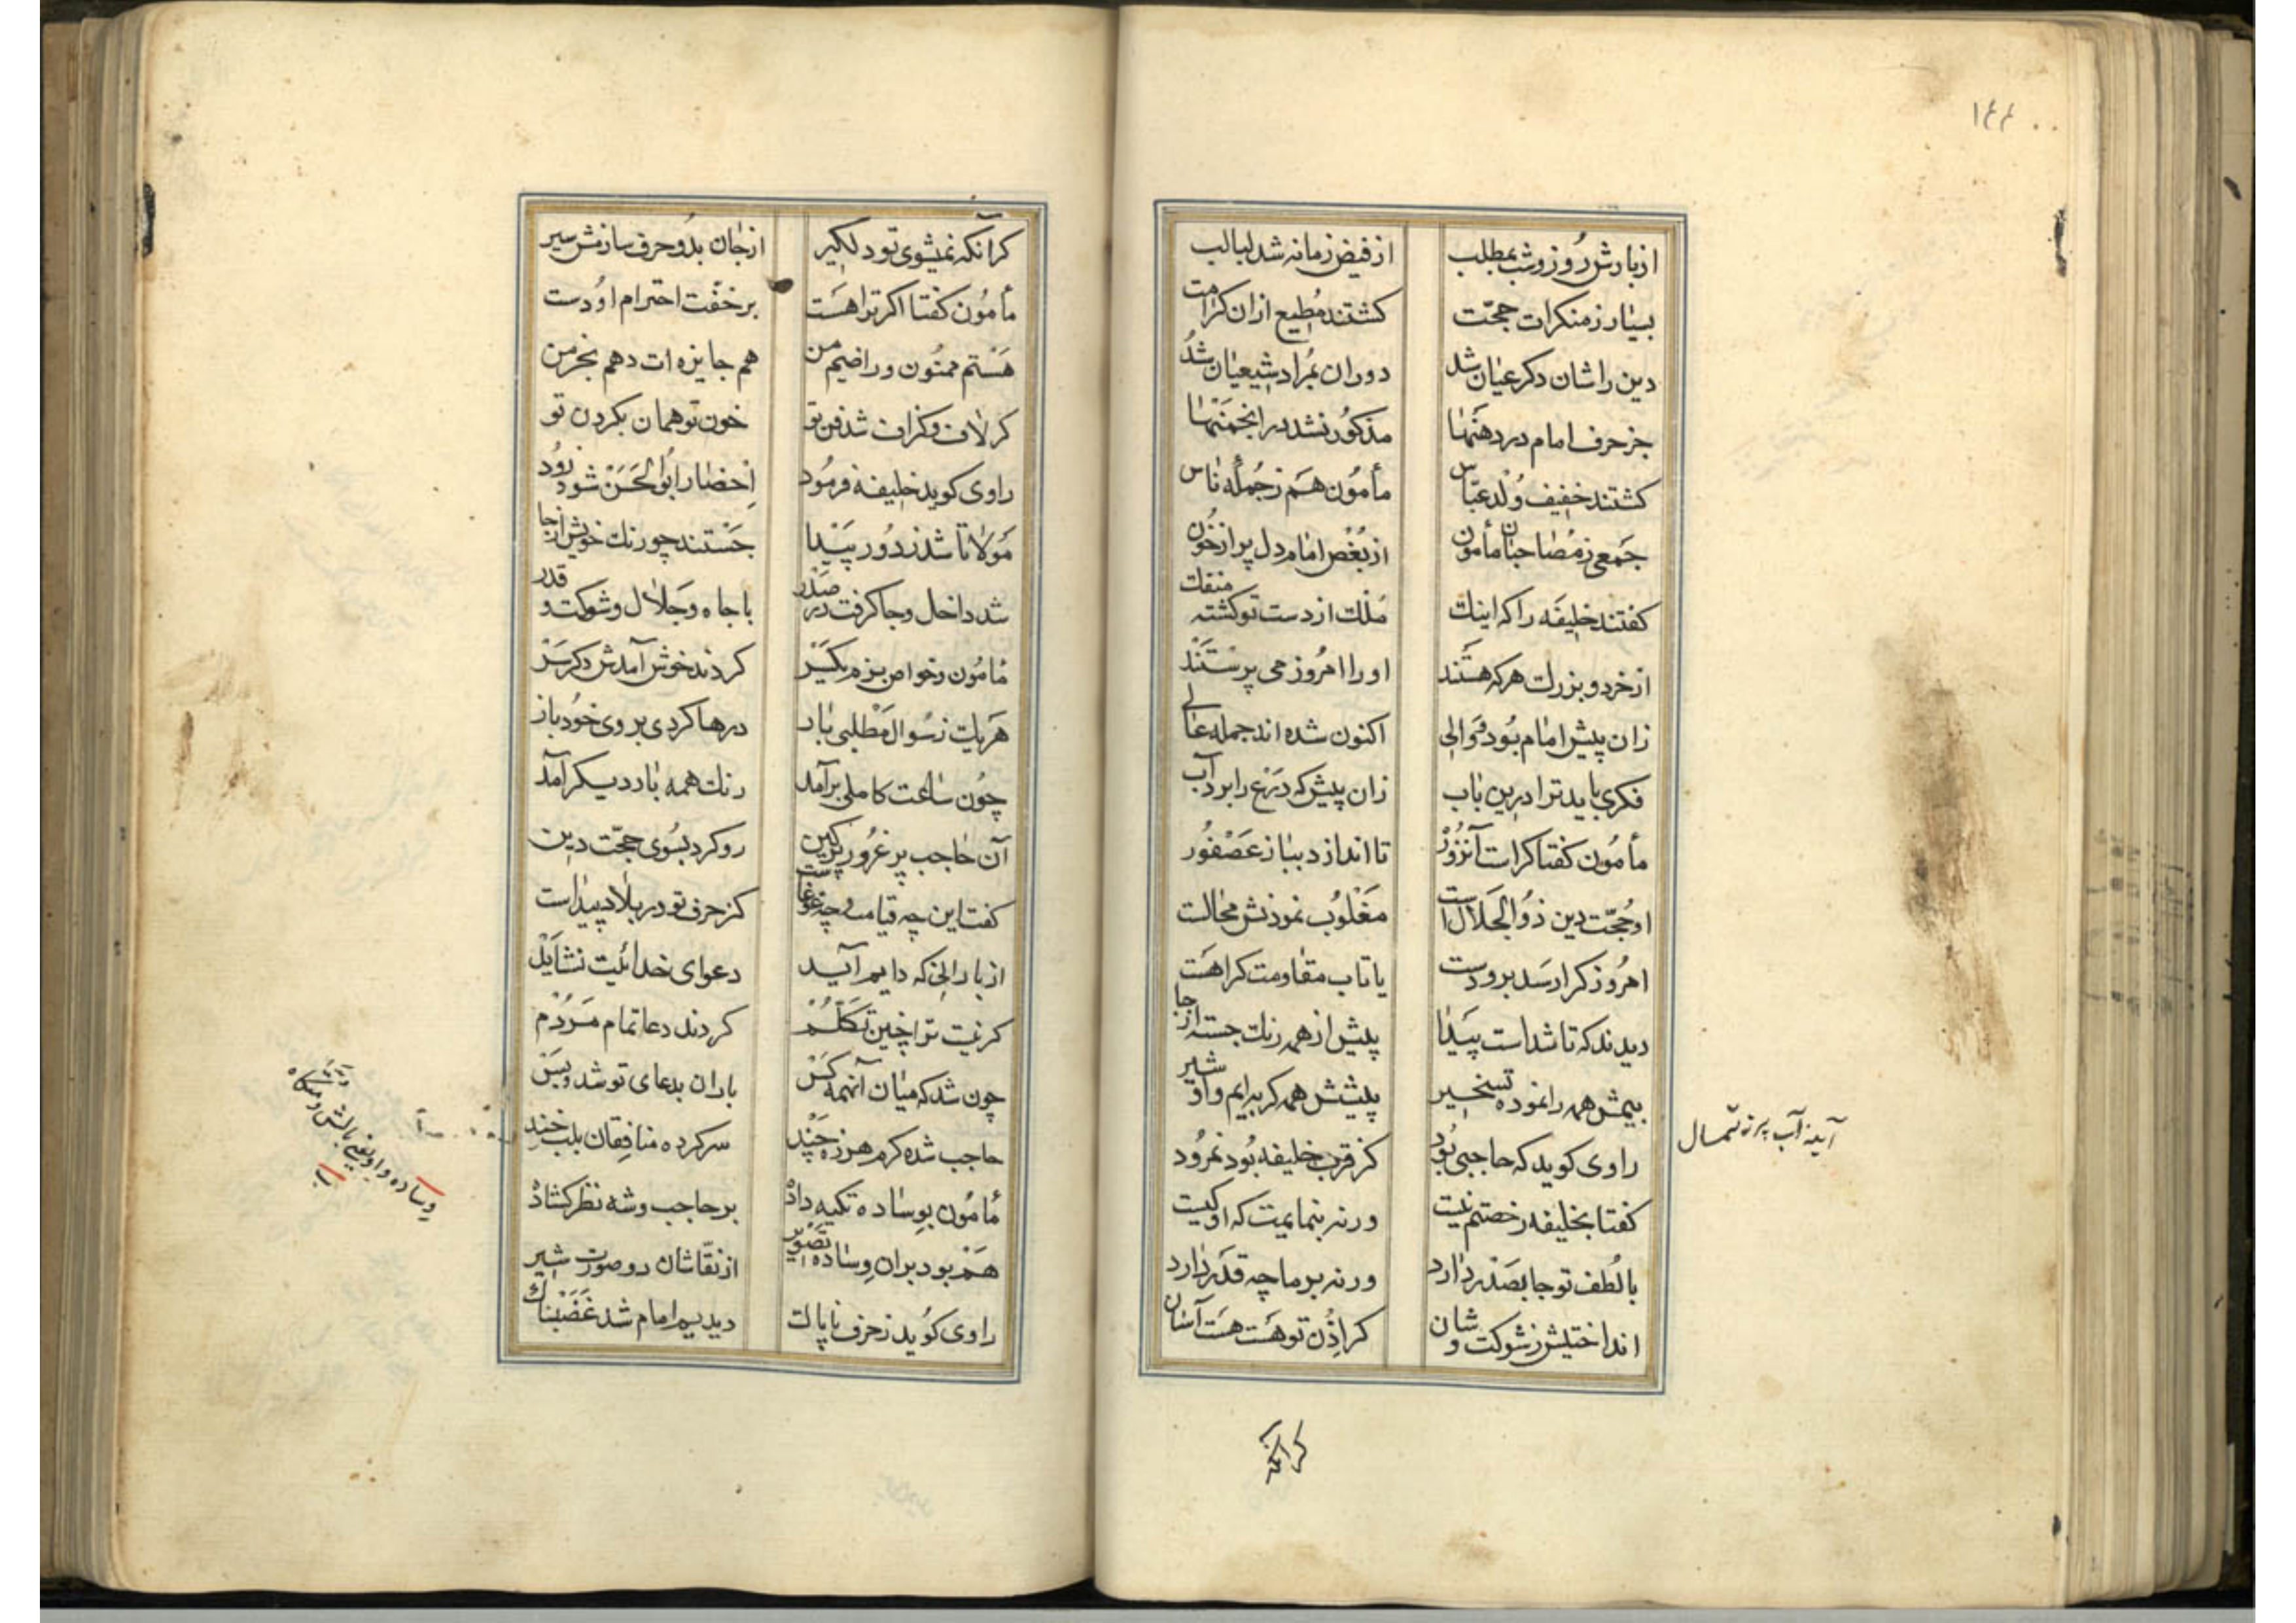 ١٤٤
از بارش روز و شب بمطلب از فیض زمانه شد لبالب
بسیار ز منکرات حجّت کشتند مُطیع ازان کرامت
دین راشان دکر عیان شد دوران بمُراد شیعیان شُد
جز حرف امام در دهَنها مذکوُر نشد در انجمَنها
کشتند خفیف وُلد عبّاس مأموُن هَم ز جُملهٔ ناس
جمعی ز مُصاحبان مأمون از بُغْض امام دل پر از خوُن
کفتند خلیفَه را که اینك مُلك از دست تو کشته منفك
از خرد و بزرك هر که هستَند او را امرُوز می پرستَنَد
زان پیش امام بُود و والی اکنون شده اند جمله عالی
فکری باید ترا درین باب زان پیش که دَرْع را برد آب
مأموُن کفتا کراست آنزوُرْ تا اندازد بباز عَصْفوُر
او حُجّت دین ذوُالجَلال است مَغْلوُب نموذنش محالست
امروُز کرا رسَد برو دست یا تاب مقاومت کرا هَست
دیدند که تا شداست پَیدا پیش از همه رنك جسته از جا
بیمش همه را نموده تسخیر پیشش همه کربه ایم و او شیر
راوی کوید که حاجبی بُود کز قرب خلیفه بُود نمرُود
کفتا بخلیفه رخصتم نیست ورنه بنمایمت که او کیست
با لُطف تو جا بصَدْر دارد ورنه بر ما چه قَدْر دارد
انداختیش ز شوکت و شان کر اِذْن تو هَست هَست آسان
آینهٔ آب پر ز تمثال
کر آنکه
کر آنکه نمیشوی تو دلکیر از جان بدو حرف سازمش سیر
مأموُن کفتا اکر ترا هَست بر خفّت احترام او دست
هَستم ممنُون و راضیم من هم جایزه ات دهم بخرمن
کر لاف و کزاف شد فن تو خون تو همان بکردن تو
راوی کوید خلیفه فرموُد اِحْضار ابُوالحَسَنْ شود زوُد
مَولانا تا شد ز دوُر پَیْدا جَستند چو رنك خویش از جا
شد داخل و جا کرفت در صَدْر با جاه و جَلال و شوکت و قدر
مأموُن و خواص بزم یکسَرْ کردند خوش آمدش دکر سَرْ
هَریك ز سُوال مَطْلبی باز درها کردی بروی خُود باز
چُون ساعت کاملی برآمد رنك همه بار دیکر آمد
آن حاجب پر غرُور پر کین رو کرد بسُوی حجّت دین
کفتا این چه قیامت و چه غوغاست کز حرف تو در بلاد پیداست
از بارانی که دایم آید دعوای خدائیت نشایَدْ
کر نیت ترا چنین تَکَلُّمْ کردند دعا تمام مَردُمْ
چون شد که میان آنهمه کَسْ باران بدعای تو شد و بَسْ
حاجب شده کرم هرزهٔ چند سر کرده منافِقان بلب خند
مأموُن بوِساده تکیه دادْ بر حاجب و شه نظر کشادْ
هَم بود بران وِساده تصْویر از نقّاشان دو صورت شیر
راوی کوُید ز حرف ناپاك دیدیم امام شد غَضَبناك
وساده واو نعنی بالش و متکاه